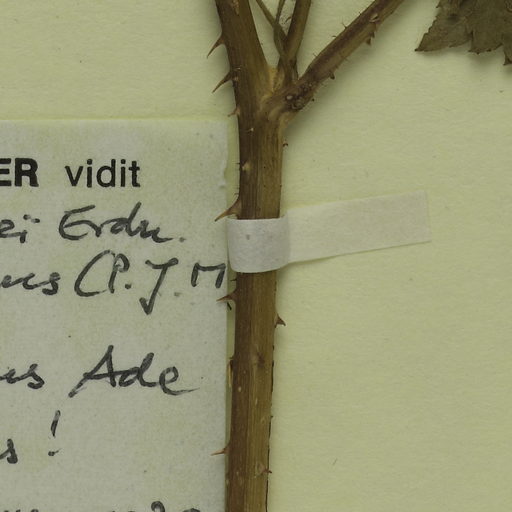 ER vidit
eï Erdn.
us (P.J.M
us Ade
s!